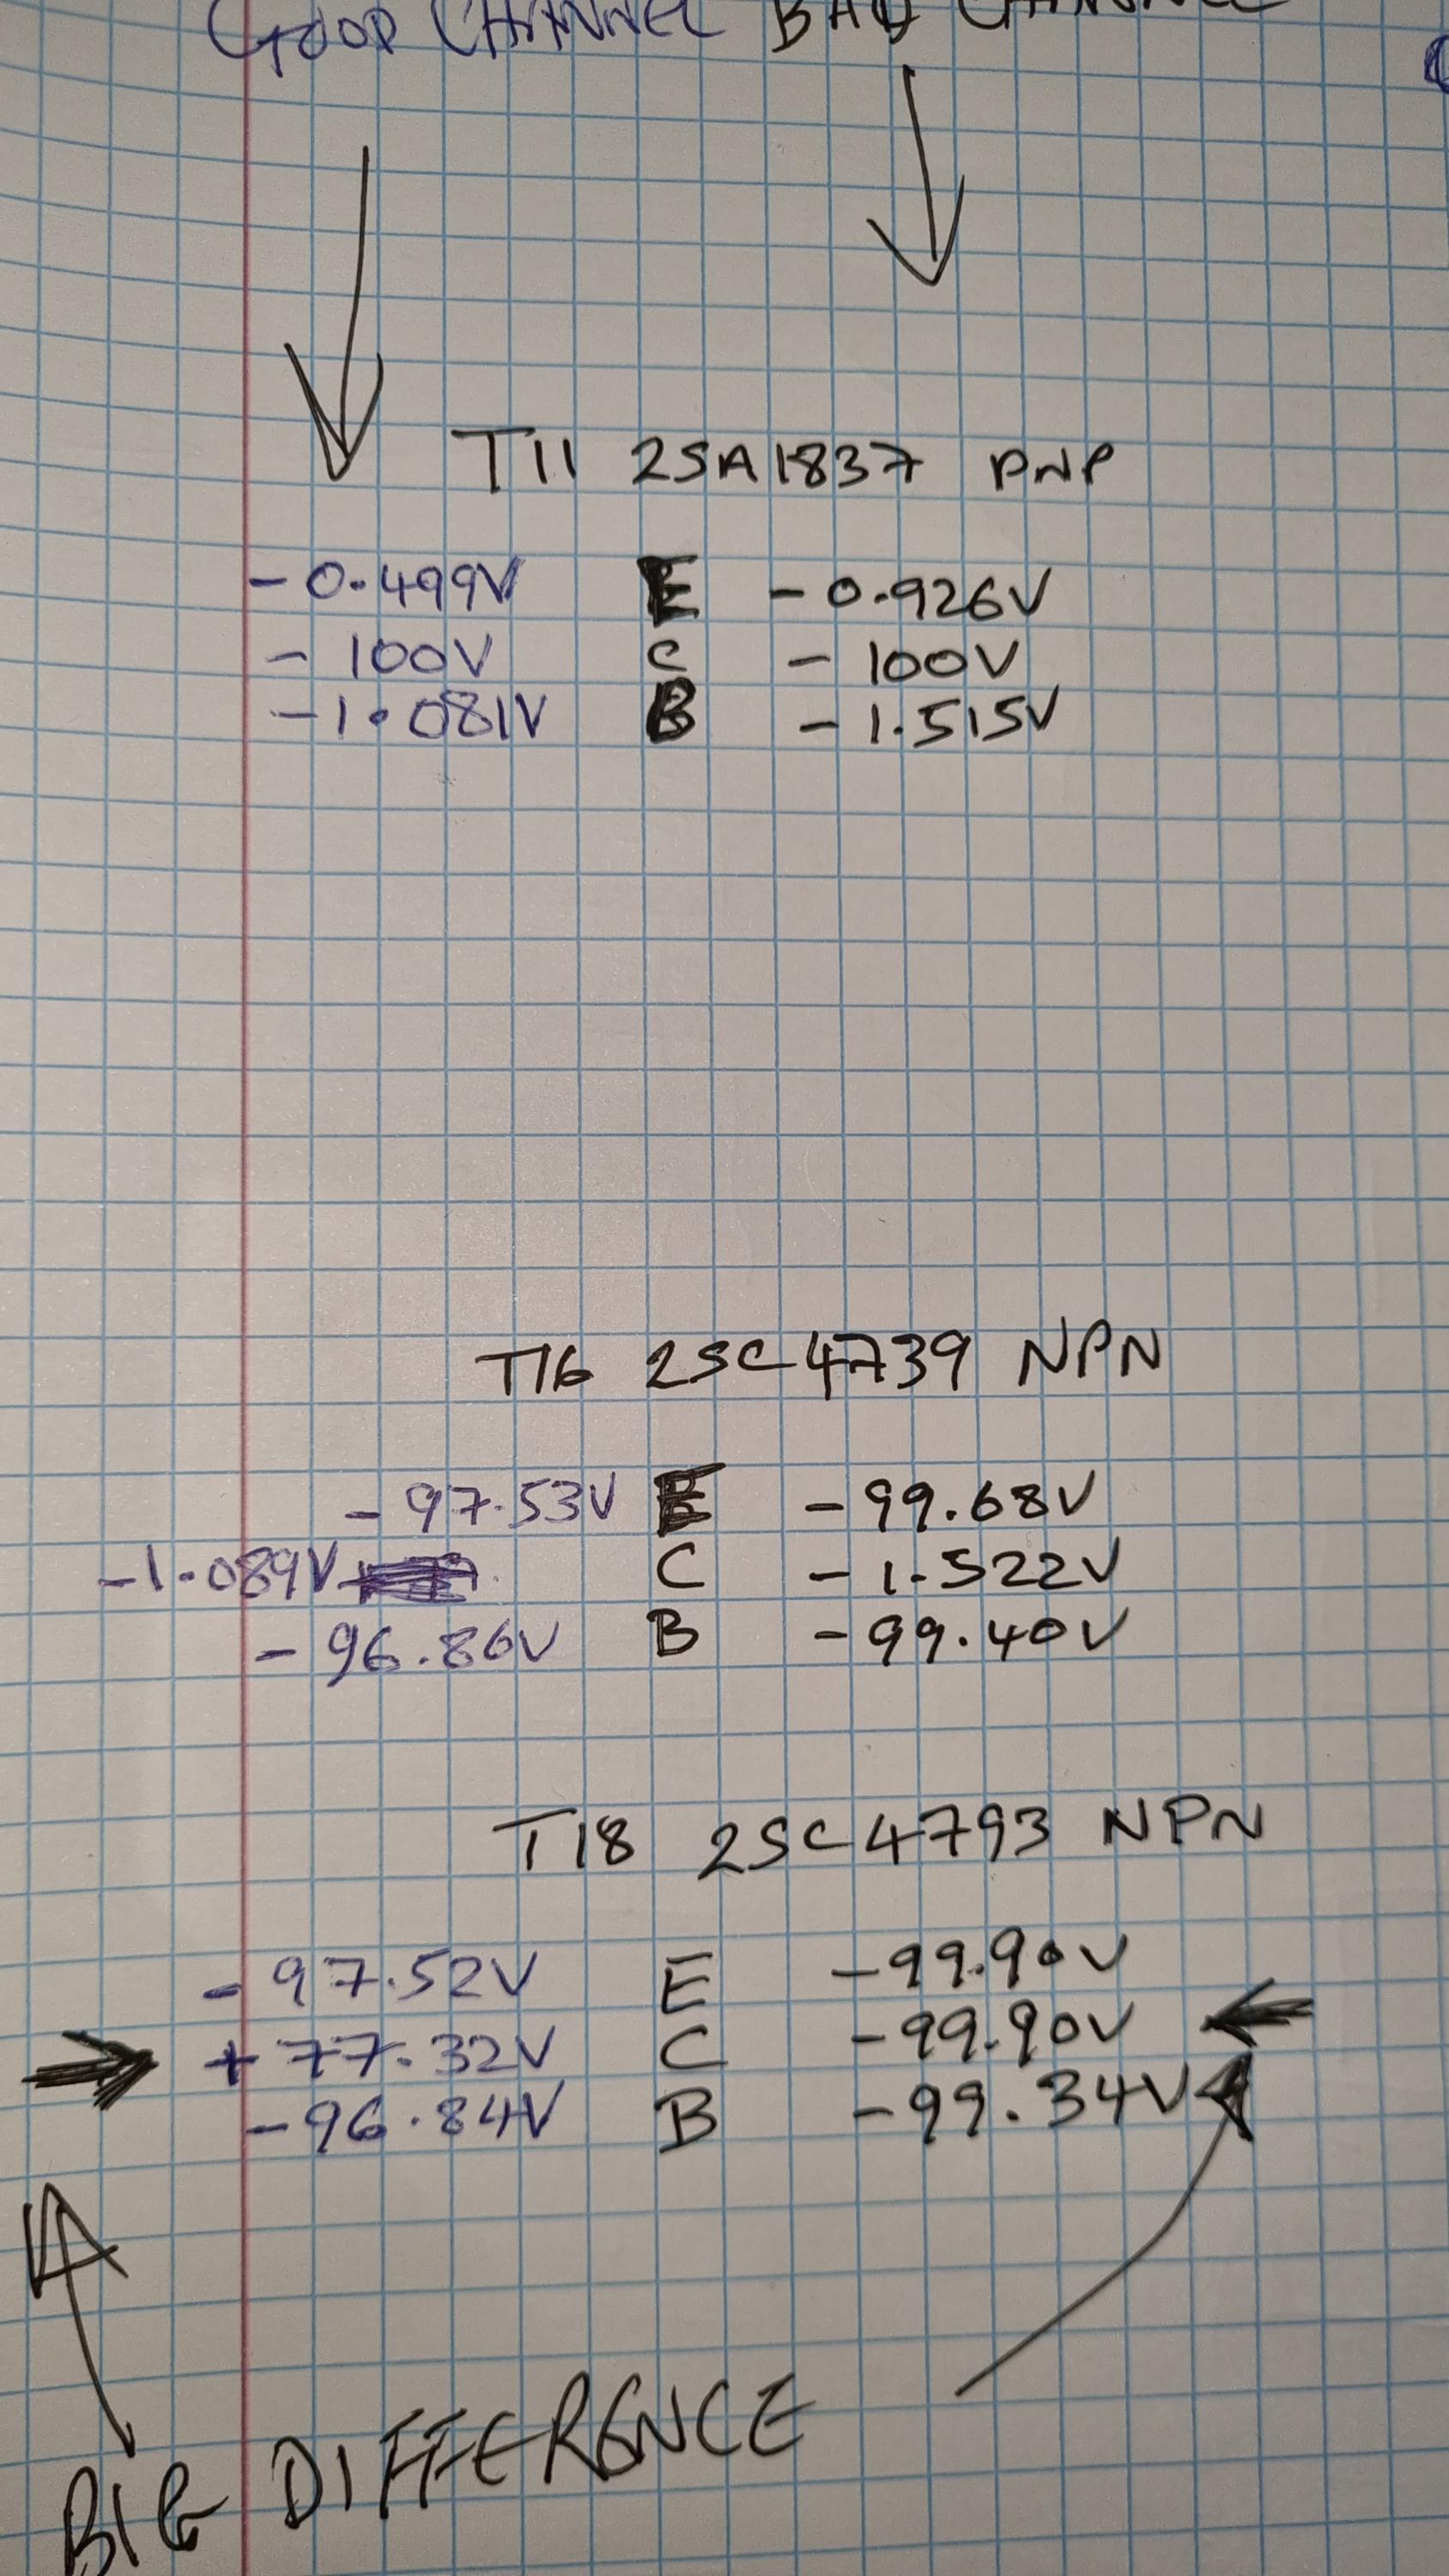 GOOD CHANNEL BAD CHANNEL
T11 2SA1837 PNP
-0.499V E -0.926V
-100V C -100V
-1.081V B -1.515V
T16 2SC4739 NPN
-97.53V E -99.68V
-1.089V C -1.522V
-96.86V B -99.40V
T18 2SC4793 NPN
-97.52V E -99.90V
+77.32V C -99.90V
-96.84V B -99.34V
BIG DIFFERENCE